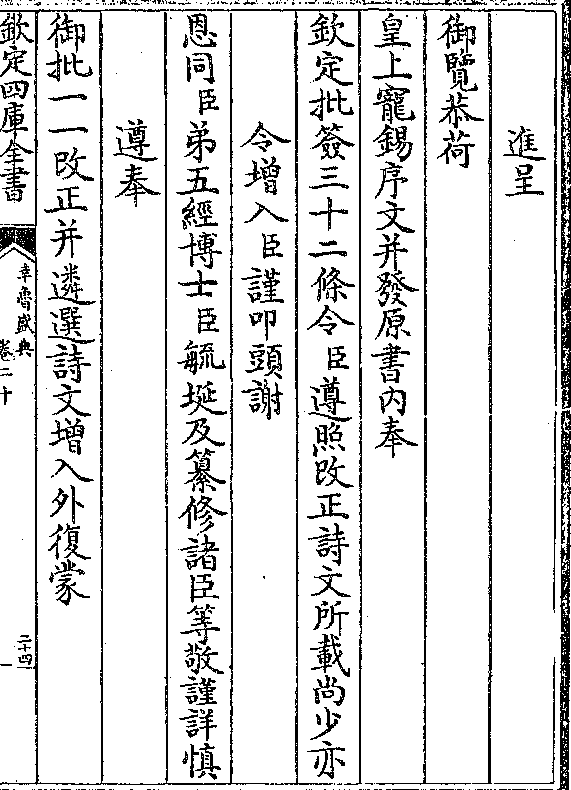 進呈
御覽恭荷
皇上寵錫序文并發原書内奉
欽定批簽三十二條令臣遵照改正詩文所載尚少亦
令增入臣謹叩頭謝
恩同臣弟五經博士臣毓埏及纂修諸臣等敬謹詳慎
遵奉
御批一一改正并遴選詩文增入外復蒙
欽定四庫全書
幸魯盛典
卷二十
二十四